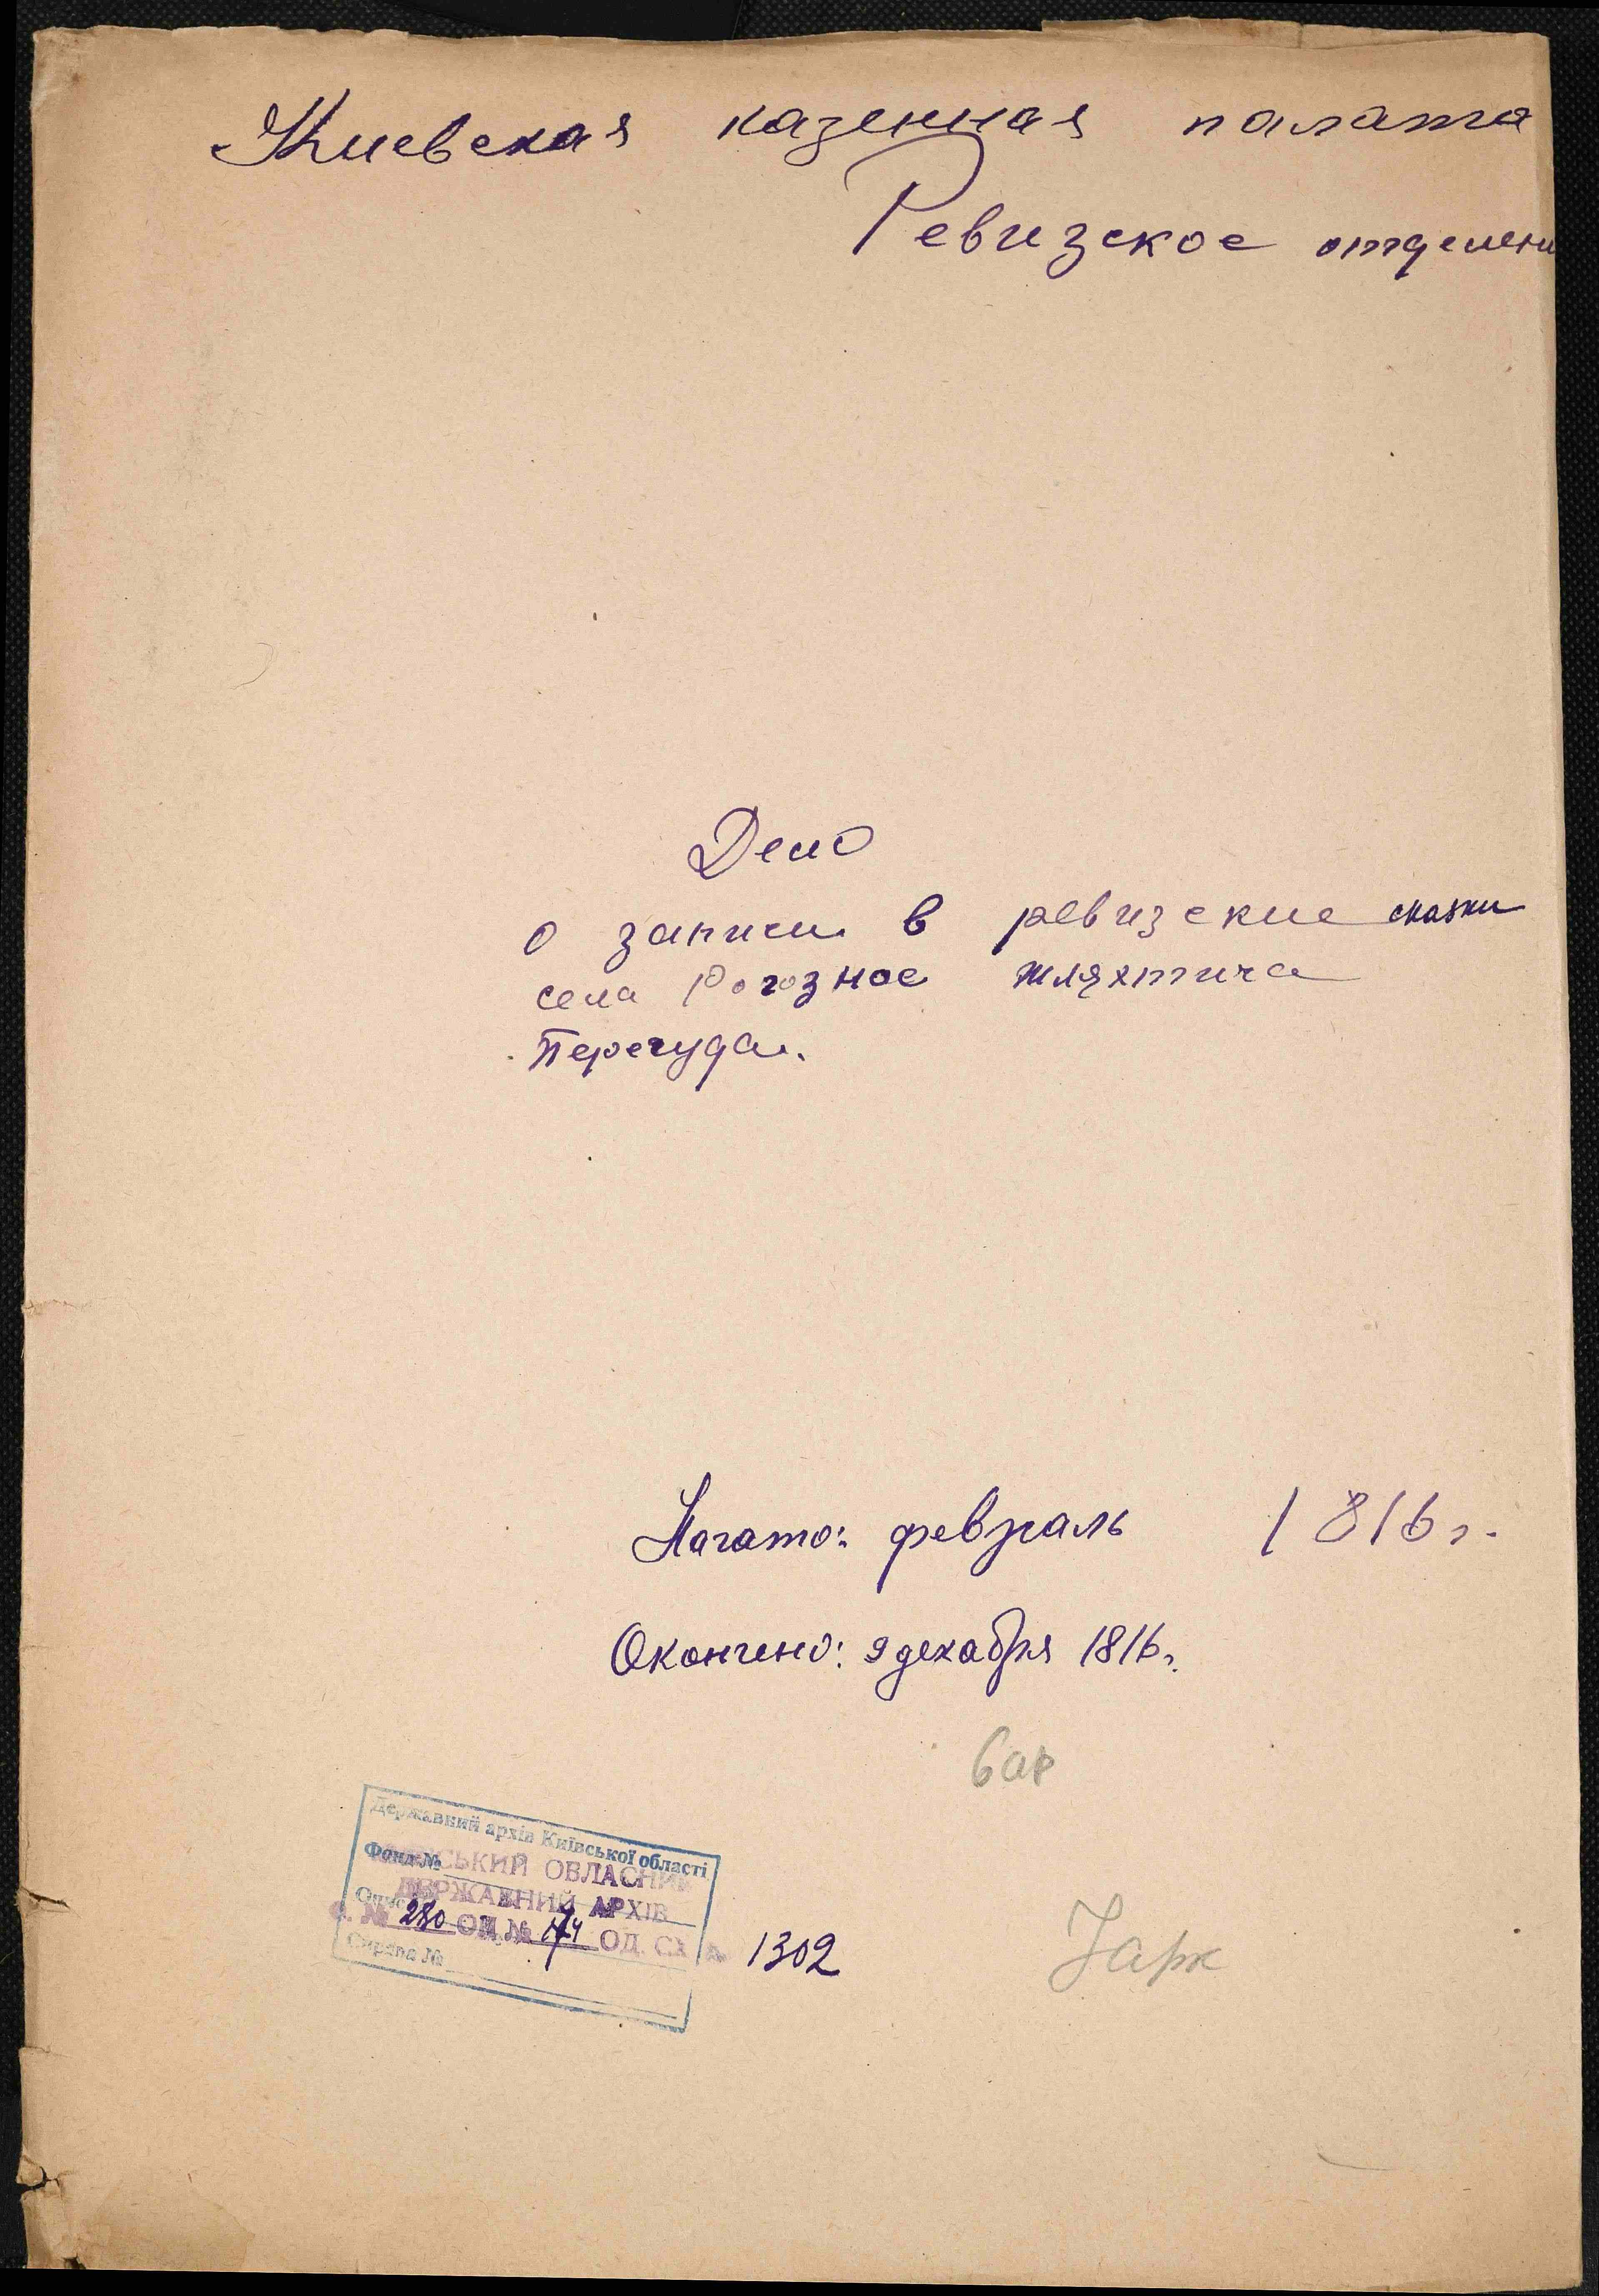 Киевская казенная палата
Ревизское отделени
Дело
о записи в ревизские сказки
села Рогозное шляхтича
Перегуда.
Начато: февраль 1816 г.
Окончено: 9 декабря 1816 г.
6 ар
Державний архів Київської області
Фонд №
СЬКИЙ ОБЛАСНИЙ
ДЕРЖАВНИЙ АРХІВ
Опис
Ф. № 280 ОП. № 174 ОД. СХ 1302
Справа №